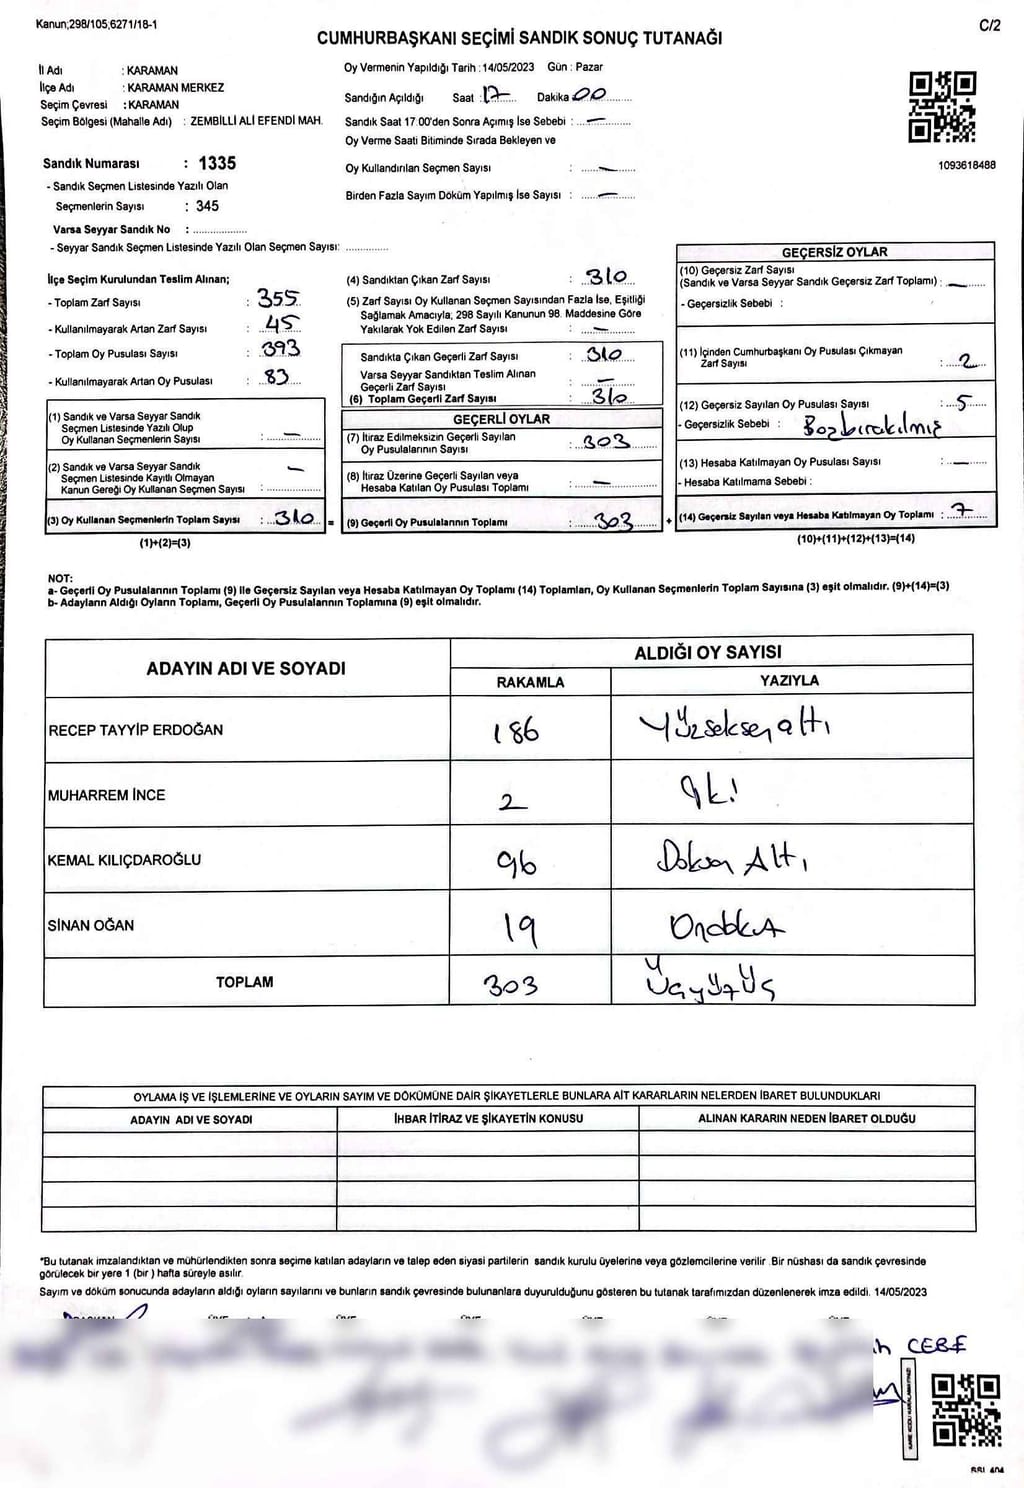 Kanun;298/105,6271/18-1
C/2
CUMHURBAŞKANI SEÇİMİ SANDIK SONUÇ TUTANAĞI
İl Adı : KARAMAN
İlçe Adı : KARAMAN MERKEZ
Seçim Çevresi : KARAMAN
Seçim Bölgesi (Mahalle Adı) : ZEMBİLLİ ALİ EFENDİ MAH.
Sandık Numarası : 1335
- Sandık Seçmen Listesinde Yazılı Olan
Seçmenlerin Sayısı : 345
Varsa Seyyar Sandık No : ..................
- Seyyar Sandık Seçmen Listesinde Yazılı Olan Seçmen Sayısı: ..............
Oy Vermenin Yapıldığı Tarih : 14/05/2023 Gün : Pazar
Sandığın Açıldığı Saat : 17 Dakika 00
Sandık Saat 17:00'den Sonra Açımış İse Sebebi : —
Oy Verme Saati Bitiminde Sırada Bekleyen ve
Oy Kullandırılan Seçmen Sayısı : —
Birden Fazla Sayım Döküm Yapılmış İse Sayısı : —
1093618488
İlçe Seçim Kurulundan Teslim Alınan;
- Toplam Zarf Sayısı : 355
- Kullanılmayarak Artan Zarf Sayısı : 45
- Toplam Oy Pusulası Sayısı : 393
- Kullanılmayarak Artan Oy Pusulası : 83
(1) Sandık ve Varsa Seyyar Sandık
Seçmen Listesinde Yazılı Olup
Oy Kullanan Seçmenlerin Sayısı : —
(2) Sandık ve Varsa Seyyar Sandık
Seçmen Listesinde Kayıtlı Olmayan
Kanun Gereği Oy Kullanan Seçmen Sayısı : —
(3) Oy Kullanan Seçmenlerin Toplam Sayısı : 310 =
(1)+(2)=(3)
(4) Sandıktan Çıkan Zarf Sayısı : 310
(5) Zarf Sayısı Oy Kullanan Seçmen Sayısından Fazla İse, Eşitliği
Sağlamak Amacıyla; 298 Sayılı Kanunun 98. Maddesine Göre
Yakılarak Yok Edilen Zarf Sayısı : —
Sandıkta Çıkan Geçerli Zarf Sayısı : 310
Varsa Seyyar Sandıktan Teslim Alınan
Geçerli Zarf Sayısı : —
(6) Toplam Geçerli Zarf Sayısı : 310
GEÇERLİ OYLAR
(7) İtiraz Edilmeksizin Geçerli Sayılan
Oy Pusulalarının Sayısı : 303
(8) İtiraz Üzerine Geçerli Sayılan veya
Hesaba Katılan Oy Pusulası Toplamı : —
(9) Geçerli Oy Pusulalarının Toplamı : 303 +
GEÇERSİZ OYLAR
(10) Geçersiz Zarf Sayısı
(Sandık ve Varsa Seyyar Sandık Geçersiz Zarf Toplamı) : —
- Geçersizlik Sebebi :
(11) İçinden Cumhurbaşkanı Oy Pusulası Çıkmayan
Zarf Sayısı : 2
(12) Geçersiz Sayılan Oy Pusulası Sayısı : 5
- Geçersizlik Sebebi : Boş bırakılmış
(13) Hesaba Katılmayan Oy Pusulası Sayısı : —
- Hesaba Katılmama Sebebi :
(14) Geçersiz Sayılan veya Hesaba Katılmayan Oy Toplamı : 7
(10)+(11)+(12)+(13)=(14)
NOT:
a- Geçerli Oy Pusulalarının Toplamı (9) ile Geçersiz Sayılan veya Hesaba Katılmayan Oy Toplamı (14) Toplamları, Oy Kullanan Seçmenlerin Toplam Sayısına (3) eşit olmalıdır. (9)+(14)=(3)
b- Adayların Aldığı Oyların Toplamı, Geçerli Oy Pusulalarının Toplamına (9) eşit olmalıdır.
ADAYIN ADI VE SOYADI
ALDIĞI OY SAYISI
RAKAMLA YAZIYLA
RECEP TAYYİP ERDOĞAN 186 Yüzseksenaltı
MUHARREM İNCE 2 İki
KEMAL KILIÇDAROĞLU 96 Doksan Altı
SİNAN OĞAN 19 Ondokuz
TOPLAM 303 Üçyüzüç
OYLAMA İŞ VE İŞLEMLERİNE VE OYLARIN SAYIM VE DÖKÜMÜNE DAİR ŞİKAYETLERLE BUNLARA AİT KARARLARIN NELERDEN İBARET BULUNDUKLARI
ADAYIN ADI VE SOYADI İHBAR İTİRAZ VE ŞİKAYETİN KONUSU ALINAN KARARIN NEDEN İBARET OLDUĞU
*Bu tutanak imzalandıktan ve mühürlendikten sonra seçime katılan adayların ve talep eden siyasi partilerin sandık kurulu üyelerine veya gözlemcilerine verilir. Bir nüshası da sandık çevresinde
görülecek bir yere 1 (bir) hafta süreyle asılır.
Sayım ve döküm sonucunda adayların aldığı oyların sayılarını ve bunların sandık çevresinde bulunanlara duyurulduğunu gösteren bu tutanak tarafımızdan düzenlenerek imza edildi. 14/05/2023
CEBE